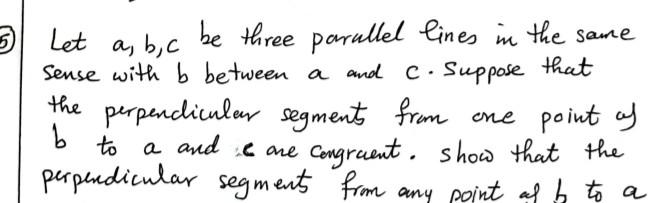 5) Let a, b, c be three parallel lines in the same
sense with b between a and c. Suppose that
the perpendicular segment from one point of
b to a and c are congruent. show that the
perpendicular segment from any point of b to a